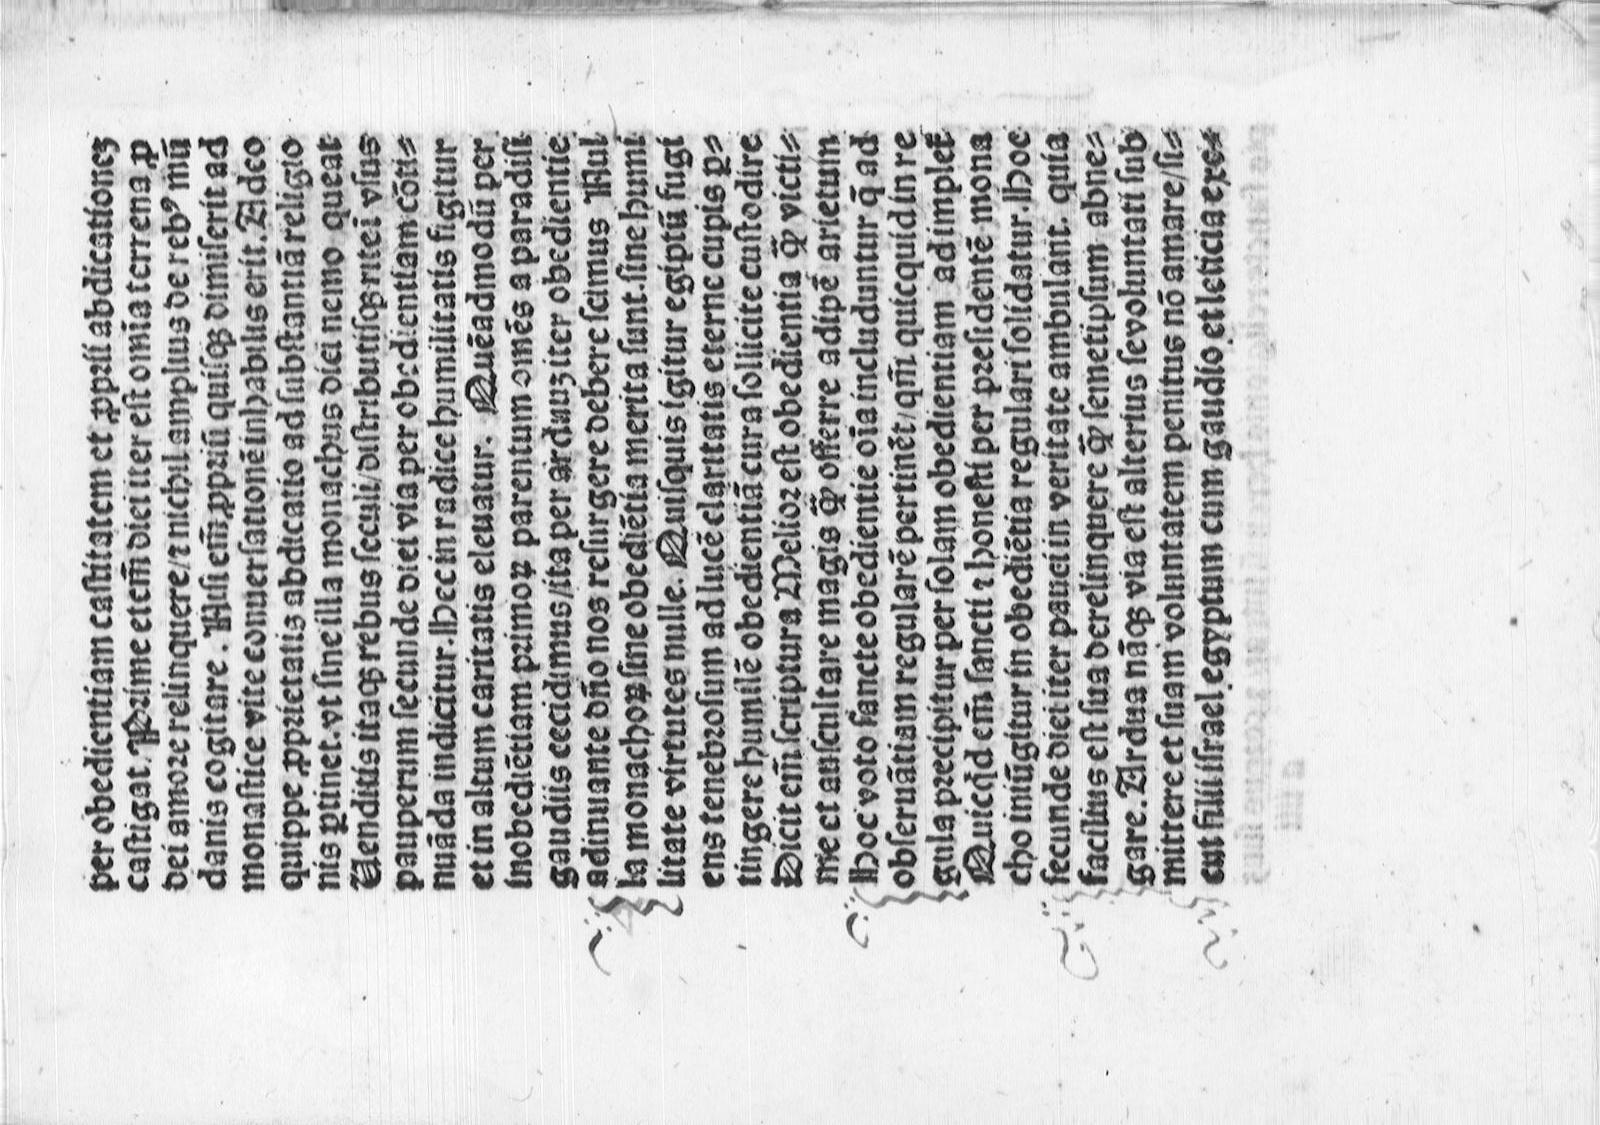 per obedientiam castitatem et ꝓprii abdicationeʒ
castigat. Prime etem̄ diei iter est om̄ia terrena ꝓ
dei amore relinquere/⁊ nichil amplius de rebꝰ mū
danis cogitare. Nisi em̄ ꝓpriū quisqʒ dimiserit ad
monastice vite conuersationē inhabilis erit. Adeo
quippe ꝓprietatis abdicatio ad substantiā religio
nis ꝑtinet. vt sine illa monachus dici nemo queat
Uenditis itaqʒ rebus seculi/distributisqʒ ritei vsus
pauperum secunde diei via per obedientiam cōti⸗
nuāda indicitur. Hec in radice humilitatis figitur
et in altum caritatis eleuatur. Quēadmodū per
inobediētiam primoꝝ parentum oīnēs a paradisi
gaudiis cecidimus/ita per arduuʒ iter obedientie
adinuante dn̄o nos resurgere debere scimus Nul
la monachoꝝ sine obediētia merita sunt. sine humi
litate virtutes nulle. Quisquis igitur egiptū fugi
ens tenebrosum ad lucē claritatis eterne cupis ꝑ⸗
tingere humilē obedientiā cura sollicite custodire
Dicit em̄ scriptura Melior est obedientia qͫ̄ victi⸗
me et auscultare magis qͫ̄ offerre adipē arietum
Hoc voto sancte obedientie oīa includuntur q̄ ad
obseruātiam regularē pertinēt/qm̄ quicquid in re
gula precipitur per solam obedientiam adimpletꝛ
Quicqͥd em̄ sancti ⁊ honesti per presidentē mona
cho iniūgitur in obediētia regulari solidatur. Hoc
secunde diei iter pauci in veritate ambulant. quia
facilius est sua derelinquere qͫ̄ semetipsum abne⸗
gare. Ardua nāqʒ via est alterius se voluntati sub
mittere et suam voluntatem penitus nō amare/si⸗
cut filii israel egyptum cum gaudio et leticia exe⸗